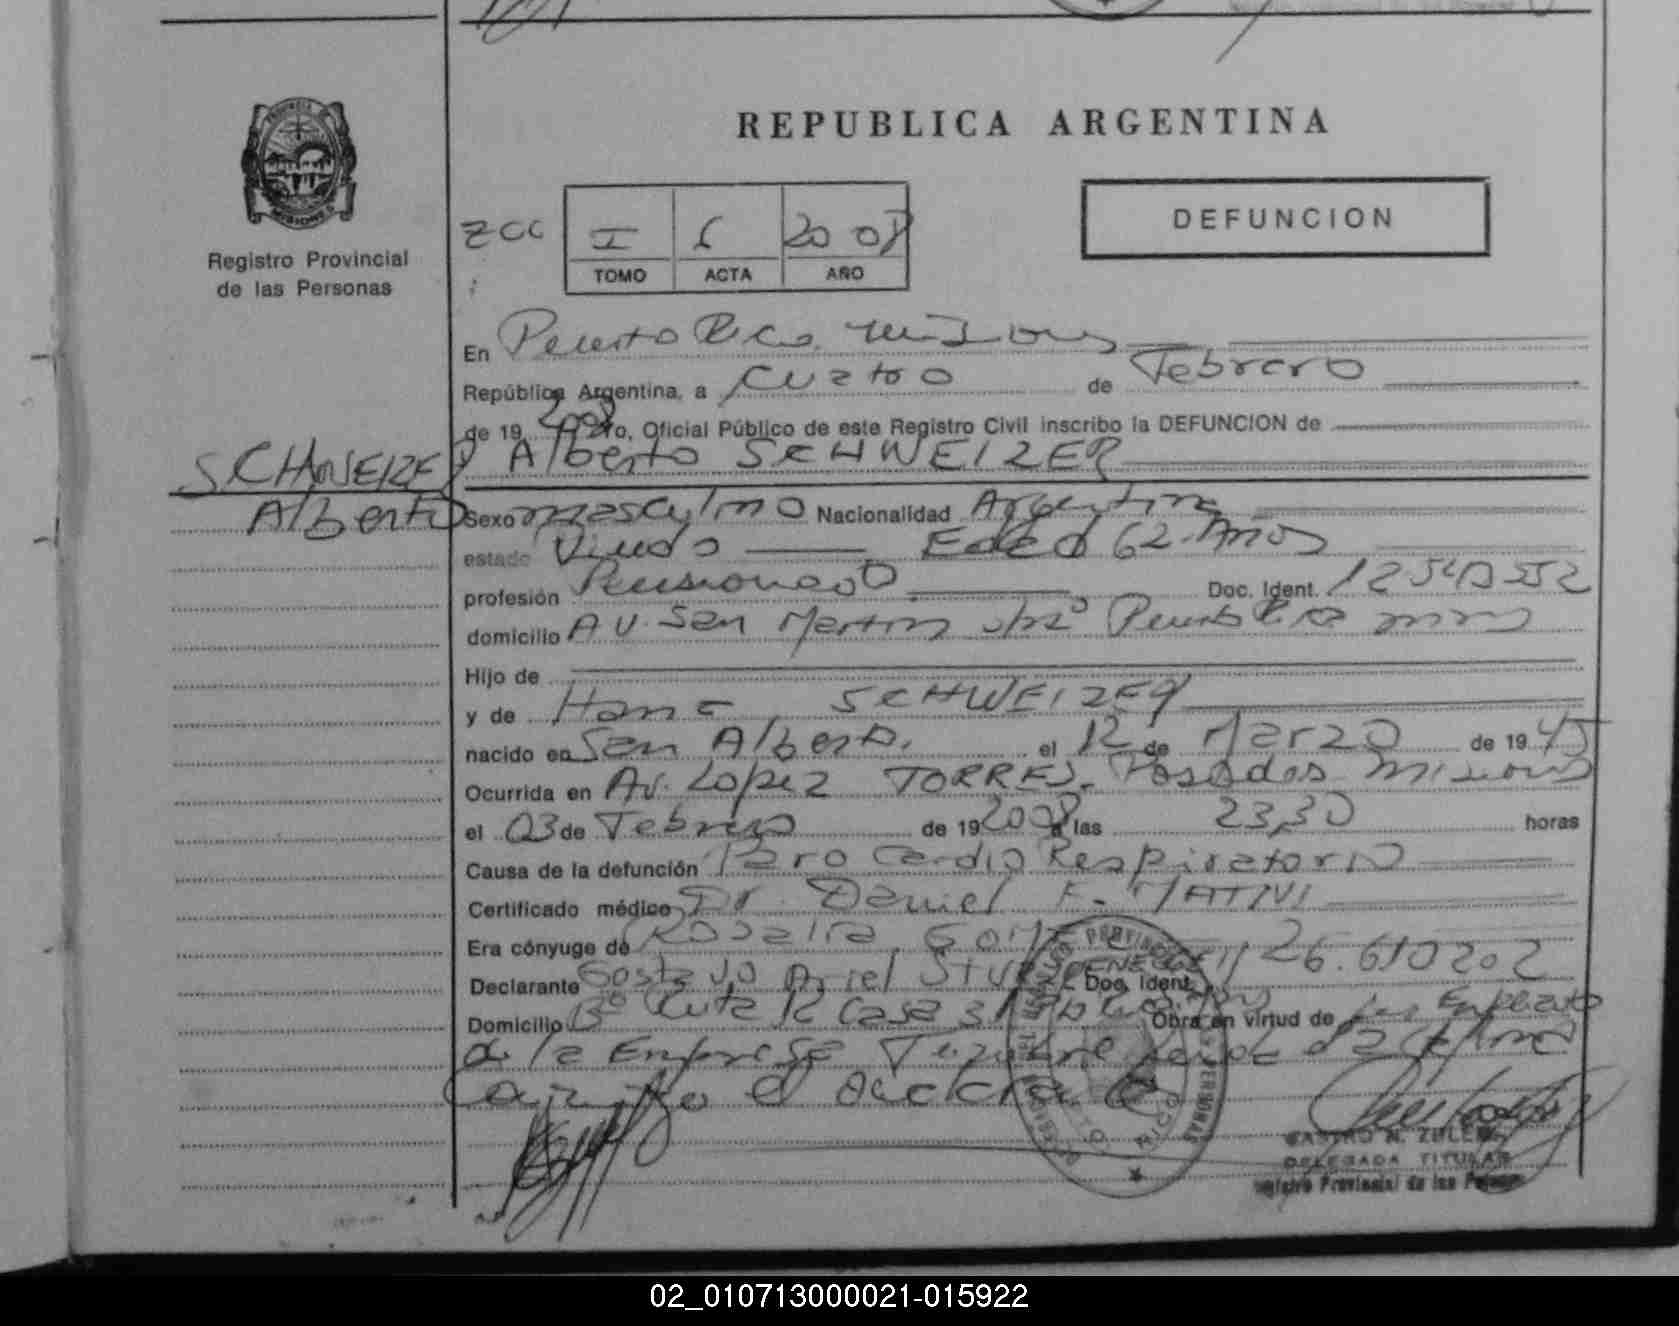 REPUBLICA ARGENTINA
PROVINCIA DE
MISIONES
Registro Provincial
de las Personas
ZCC
I 6 2008
TOMO ACTA AÑO
DEFUNCION
En Puerto Rico Misiones
República Argentina, a Cuatro de Febrero
de 19 2008 Yo, Oficial Público de este Registro Civil inscribo la DEFUNCION de
Alberto SCHWEIZER
SCHWEIZER
Alberto
Sexo masculino Nacionalidad Argentina
estado Viudo Edad 62 Años
profesión Pensionado Doc. Ident.
domicilio Av. San Martin s/nº Puerto Rico mnes
Hijo de
y de SCHWEIZER
nacido en San Alberto. el 12 de Marzo de 1945
Ocurrida en Av. Lopez TORRES. Posadas Misiones
el 03 de Febrero de 19 2008 a las 23,30 horas
Causa de la defunción Paro Cardio Respiratorio
Certificado médico Dr. Daniel F.
Era cónyuge de Rosalia
Declarante Gustavo Ariel Doc. Ident. 26.610202
Domicilio Bº Ruta 12 Casa 31 Pto Rico Obra en virtud de ser Empleado
de la Empresa
el declarante
CASTRO N. ZULEMA
DELEGADA TITULAR
Registro Provincial de las Personas
02_010713000021-015922